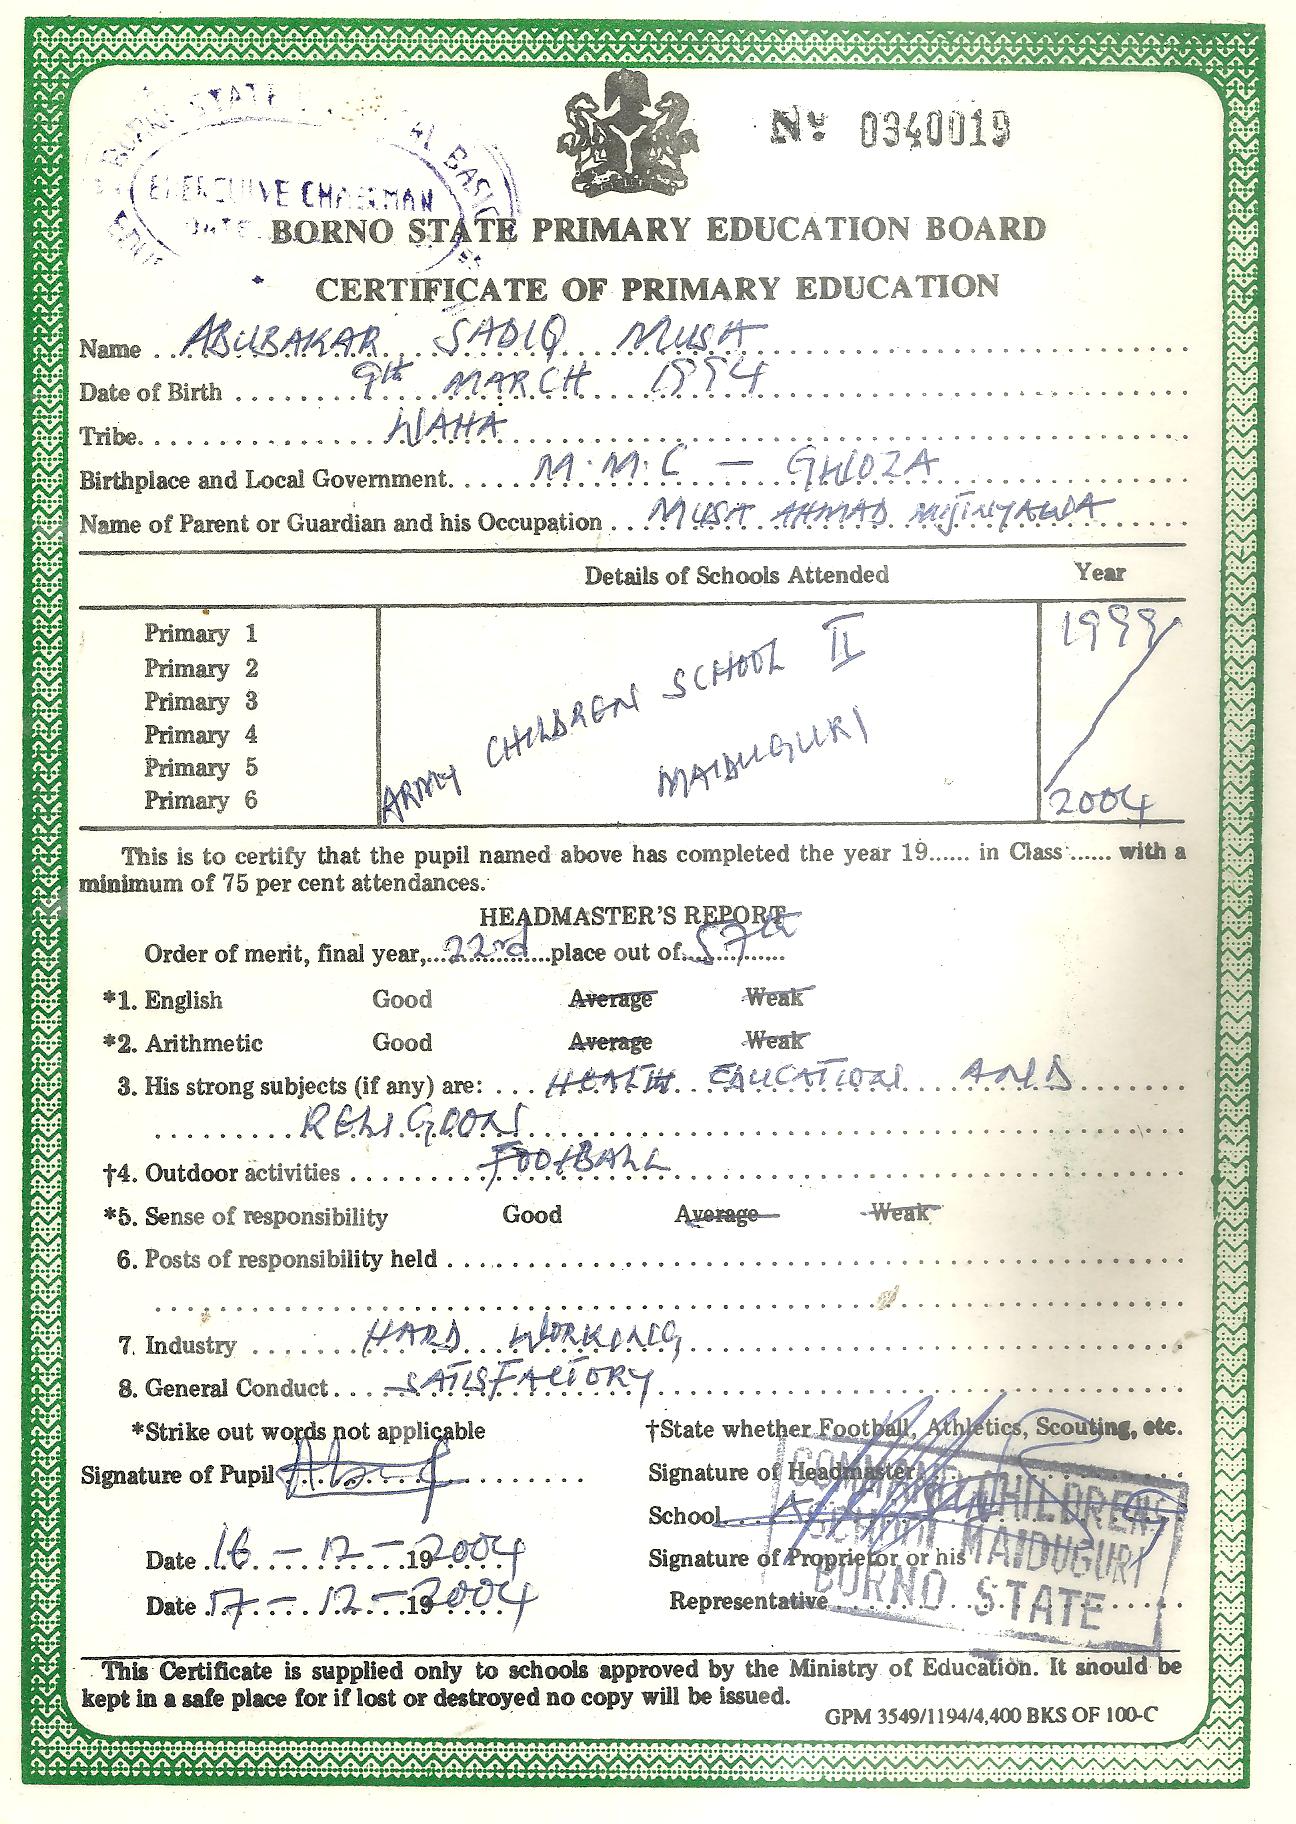 BORNO STATE
AL BASIC
EXERCUIVE CHAIRMAN
DATE
Nº 0340019
BORNO STATE PRIMARY EDUCATION BOARD
CERTIFICATE OF PRIMARY EDUCATION
Name ABUBAKAR SADIQ MUSA
Date of Birth 9th MARCH 1994
Tribe WAHA
Birthplace and Local Government M.M.C - GHWOZA
Name of Parent or Guardian and his Occupation MUSA AHMAD MIJINYAWA
Details of Schools Attended Year
Primary 1 1999
Primary 2
Primary 3
Primary 4
Primary 5
Primary 6 2004
ARMY CHILDREN SCHOOL II
MAIDUGURI
This is to certify that the pupil named above has completed the year 19...... in Class ...... with a
minimum of 75 per cent attendances.
HEADMASTER'S REPORT
Order of merit, final year, 22nd place out of 57th
*1. English Good Average Weak
*2. Arithmetic Good Average Weak
3. His strong subjects (if any) are: HEALTH EDUCATION AND
RELIGOON
†4. Outdoor activities FOOTBALL
*5. Sense of responsibility Good Average Weak
6. Posts of responsibility held
7. Industry HARD WORKING
8. General Conduct SATISFACTORY
*Strike out words not applicable †State whether Football, Athletics, Scouting, etc.
Signature of Pupil Signature of Headmaster
School
Date 16 - 12 - 19 2004 Signature of Proprietor or his
Date 17 - 12 - 19 2004 Representative
COMMAND CHILDREN
SCHOOL MAIDUGURI
BORNO STATE
This Certificate is supplied only to schools approved by the Ministry of Education. It should be
kept in a safe place for if lost or destroyed no copy will be issued.
GPM 3549/1194/4,400 BKS OF 100-C